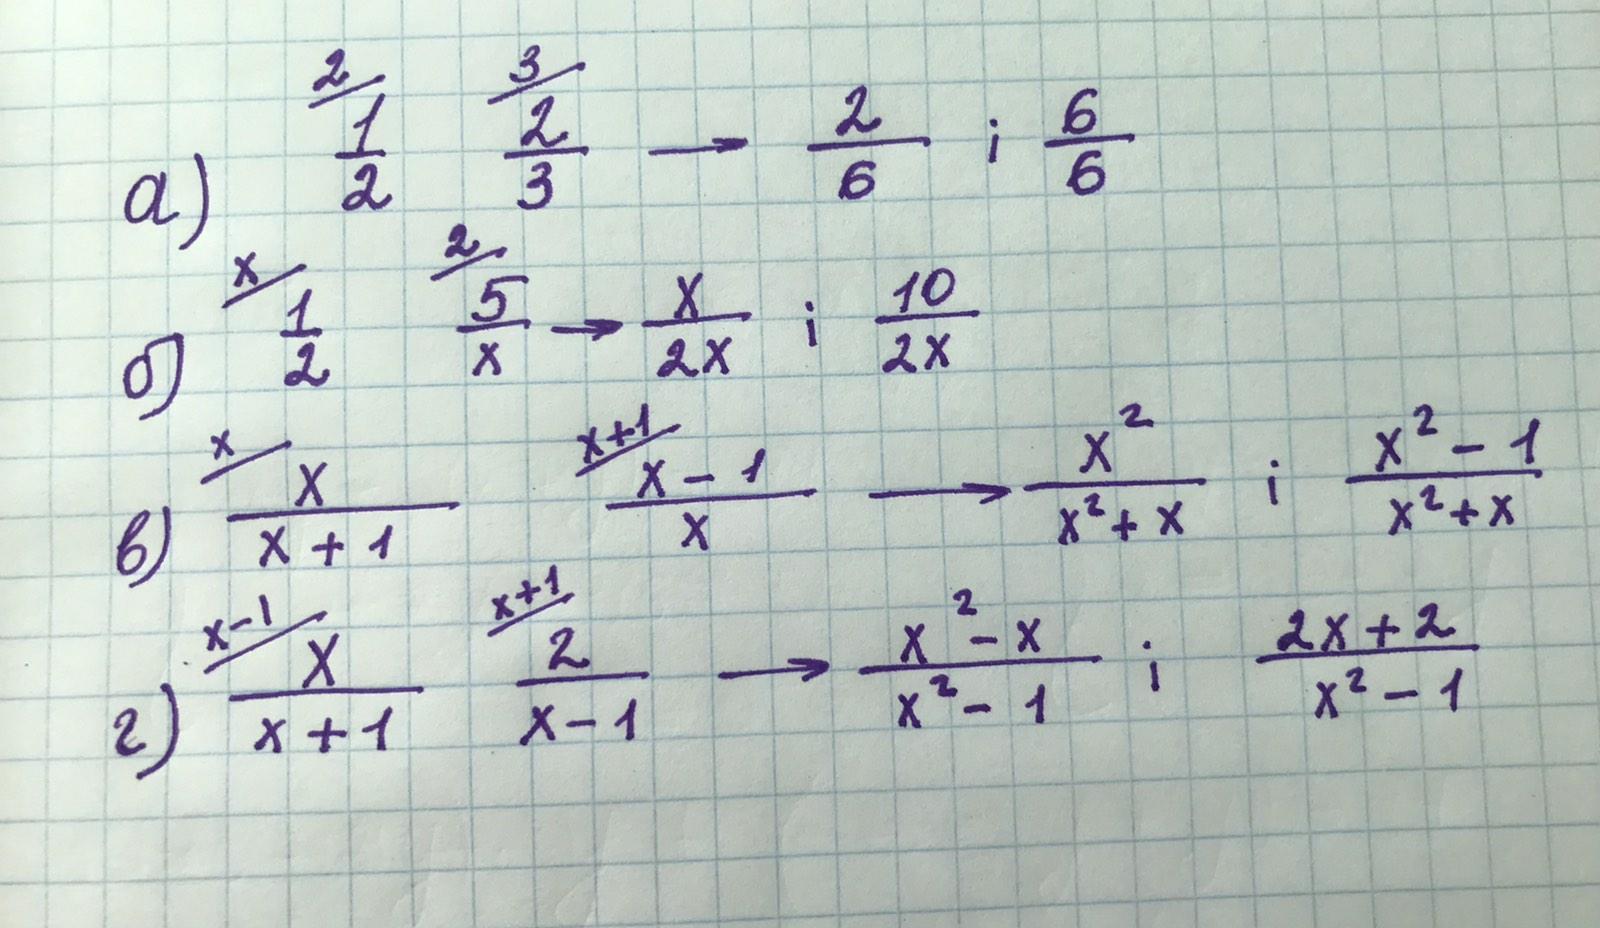 а) 2/ 1/2 3/ 2/3 → 2/6 і 6/6
б) x/ 1/2 2/ 5/x → x/2x і 10/2x
в) x/ x/(x + 1) x+1/ (x - 1)/x → x²/(x² + x) і (x² - 1)/(x² + x)
г) x-1/ x/(x + 1) x+1/ 2/(x - 1) → (x² - x)/(x² - 1) і (2x + 2)/(x² - 1)